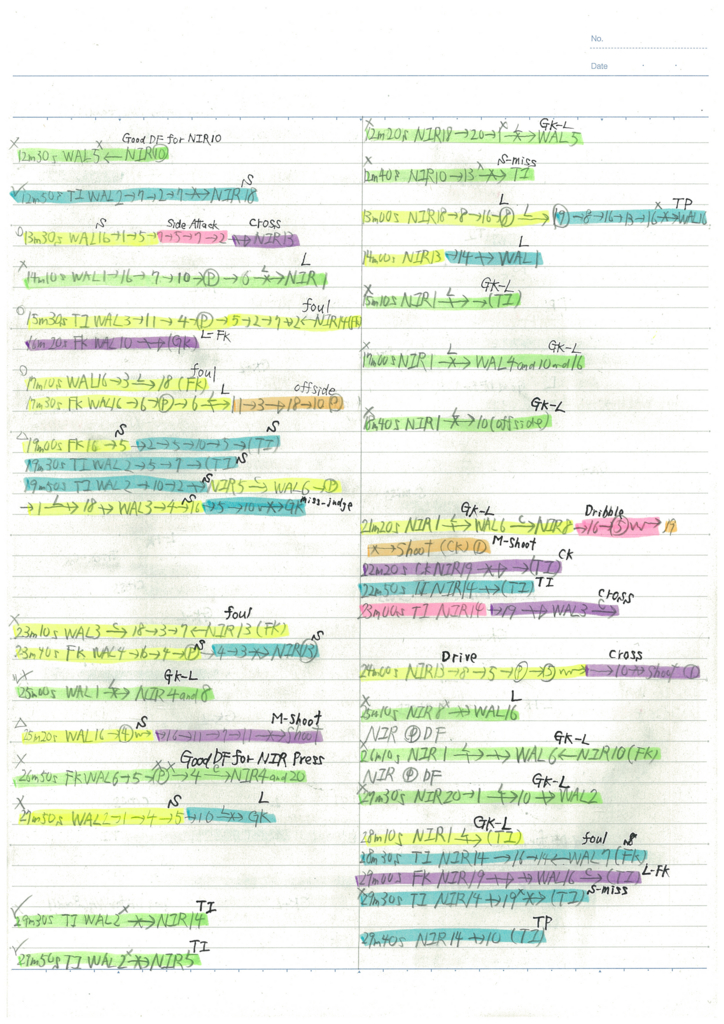 No.
Date
Good DF for NIR10
12m30s WAL5 ← NIR10
S
12m50s TI WAL2→7→2→7→NIR18
S Side Attack Cross
13m30s WAL16→1→5→7→5→7→2→NIR13
L
14m10s WAL1→16→7→10→Ⓟ→6→NIR1
foul
15m30s TI WAL3→11→4→Ⓟ→5→2→7→2←NIR14(FK)
L-FK
16m20s FK WAL10→(GK)
foul
17m10s WAL16→3→18(FK)
L offside
17m30s FK WAL16→6→Ⓟ→6→11→3→18→10Ⓟ
S S
19m00s FK16→5→2→5→10→5→(TI)
S
19m30s TI WAL2→5→7→(TI)
S S
19m50s TI WAL2→10→2→NIR5→WAL6→Ⓟ
S miss-judge
→1→18→WAL3→4→16→5→10→GK
foul
23m10s WAL3→18→3→7←NIR13(FK)
S S
23m40s FK WAL4→6→4→Ⓟ→4→3→NIR13
GK-L
25m00s WAL1→NIR4and8
S M-Shoot
25m20s WAL16→④→16→11→7→11→Shoot
Good DF for NIR Press
26m50s FK WAL6→5→Ⓟ→4→NIR4and20
S L
27m50s WAL2→1→4→5→10→GK
TI
29m30s TI WAL2→NIR14
TI
29m50s TI WAL2→NIR5
GK-L
12m20s NIR18→20→1→WAL5
S-miss
12m40s NIR10→13→TI
L TP
13m00s NIR18→8→16→⑧→⑲→8→16→13→16→WAL16
L
14m00s NIR13→14→WAL1
GK-L
15m10s NIR1→→(TI)
GK-L
17m00s NIR1→WAL4and10and16
GK-L
18m40s NIR1→10(offside)
GK-L Dribble
21m20s NIR1→WAL6→NIR8→16→⑤→19
M-Shoot
→Shoot(CK)Ⓟ
CK
22m20s CK NIR19→→(TI)
TI
22m50s TI NIR14→(TI)
Cross
23m00s TI NIR14→19→WAL3→
Drive Cross
24m00s NIR13→8→5→Ⓟ→⑤→→10→Shoot Ⓟ
L
25m10s NIR8→WAL16
NIR Ⓟ DF
GK-L
26m10s NIR1→→WAL6←NIR10(FK)
NIR Ⓟ DF
GK-L
27m30s NIR20→1→10→WAL2
GK-L
28m10s NIR1→(TI)
foul S
28m30s TI NIR14→16→14←WAL7(FK)
L-FK
29m00s FK NIR19→WAL16→(TI)
S-miss
29m30s TI NIR14→19→(TI)
TP
29m40s NIR14→10(TI)